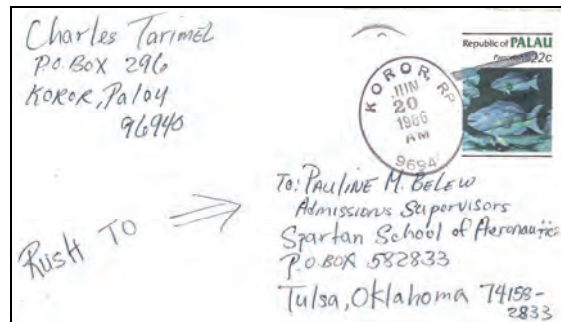 Charles Tarimel
P.O. BOX 296
KOROR, Palau
96940
Republic of PALAU
22c
KOROR, RP
JUN
20
1986
AM
9694
To: PAULINE M. BELEW
Admissions Supervisors
Spartan School of Aeronautics
P.O. BOX 582833
Tulsa, Oklahoma 74158-
2833
RUSH TO